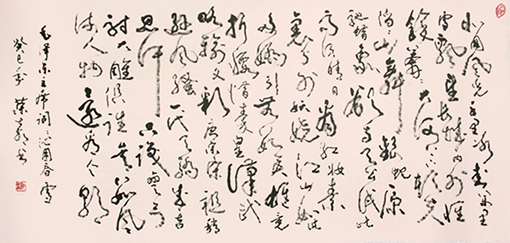 北国风光千里冰封万里
雪飘望长城内外惟
馀莽莽大河上下顿失
滔滔山舞银蛇原
驰蜡象欲与天公试比
高须晴日看红妆素
裹分外妖娆江山如此
多娇引无数英雄竞
折腰惜秦皇汉武
略输文采唐宗宋祖稍
逊风骚一代天骄成吉
思汗只识弯弓
射大雕俱往矣数风
流人物还看今朝
毛泽东主席词沁园春雪
癸巳年